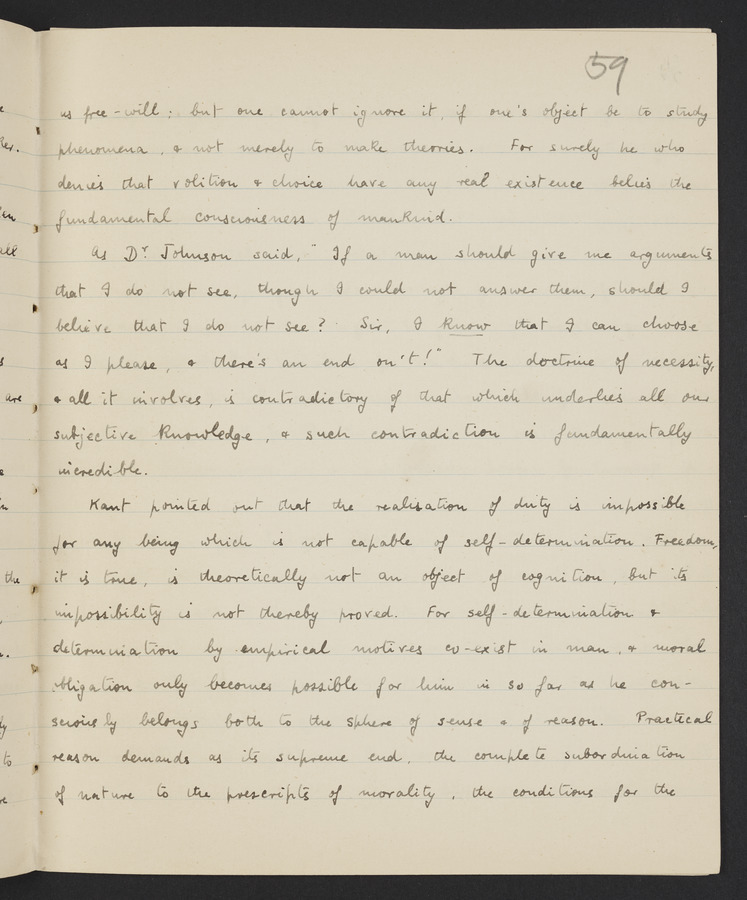 59
us free-will; but one cannot ignore it, if one's object be to study
phenomena, & not merely to make theories. For surely he who
denies that volition & choice have any real existence belies the
fundamental consciousness of mankind.
As Dr Johnson said, "If a man should give me arguments
that I do not see, though I could not answer them, should I
believe that I do not see? Sir, I know that I can choose
as I please, & there's an end on't!" The doctrine of necessity,
& all it involves, is contradictory of that which underlies all our
subjective knowledge, & such contradiction is fundamentally
incredible.
Kant pointed out that the realisation of duty is impossible
for any being which is not capable of self-determination. Freedom,
it is true, is theoretically not an object of cognition, but its
impossibility is not thereby proved. For self-determination &
determination by empirical motives co-exist in man, & moral
obligation only becomes possible for him in so far as he con-
sciously belongs both to the sphere of sense & of reason. Practical
reason demands as its supreme end, the complete subordination
of nature to the prescripts of morality, the conditions for the